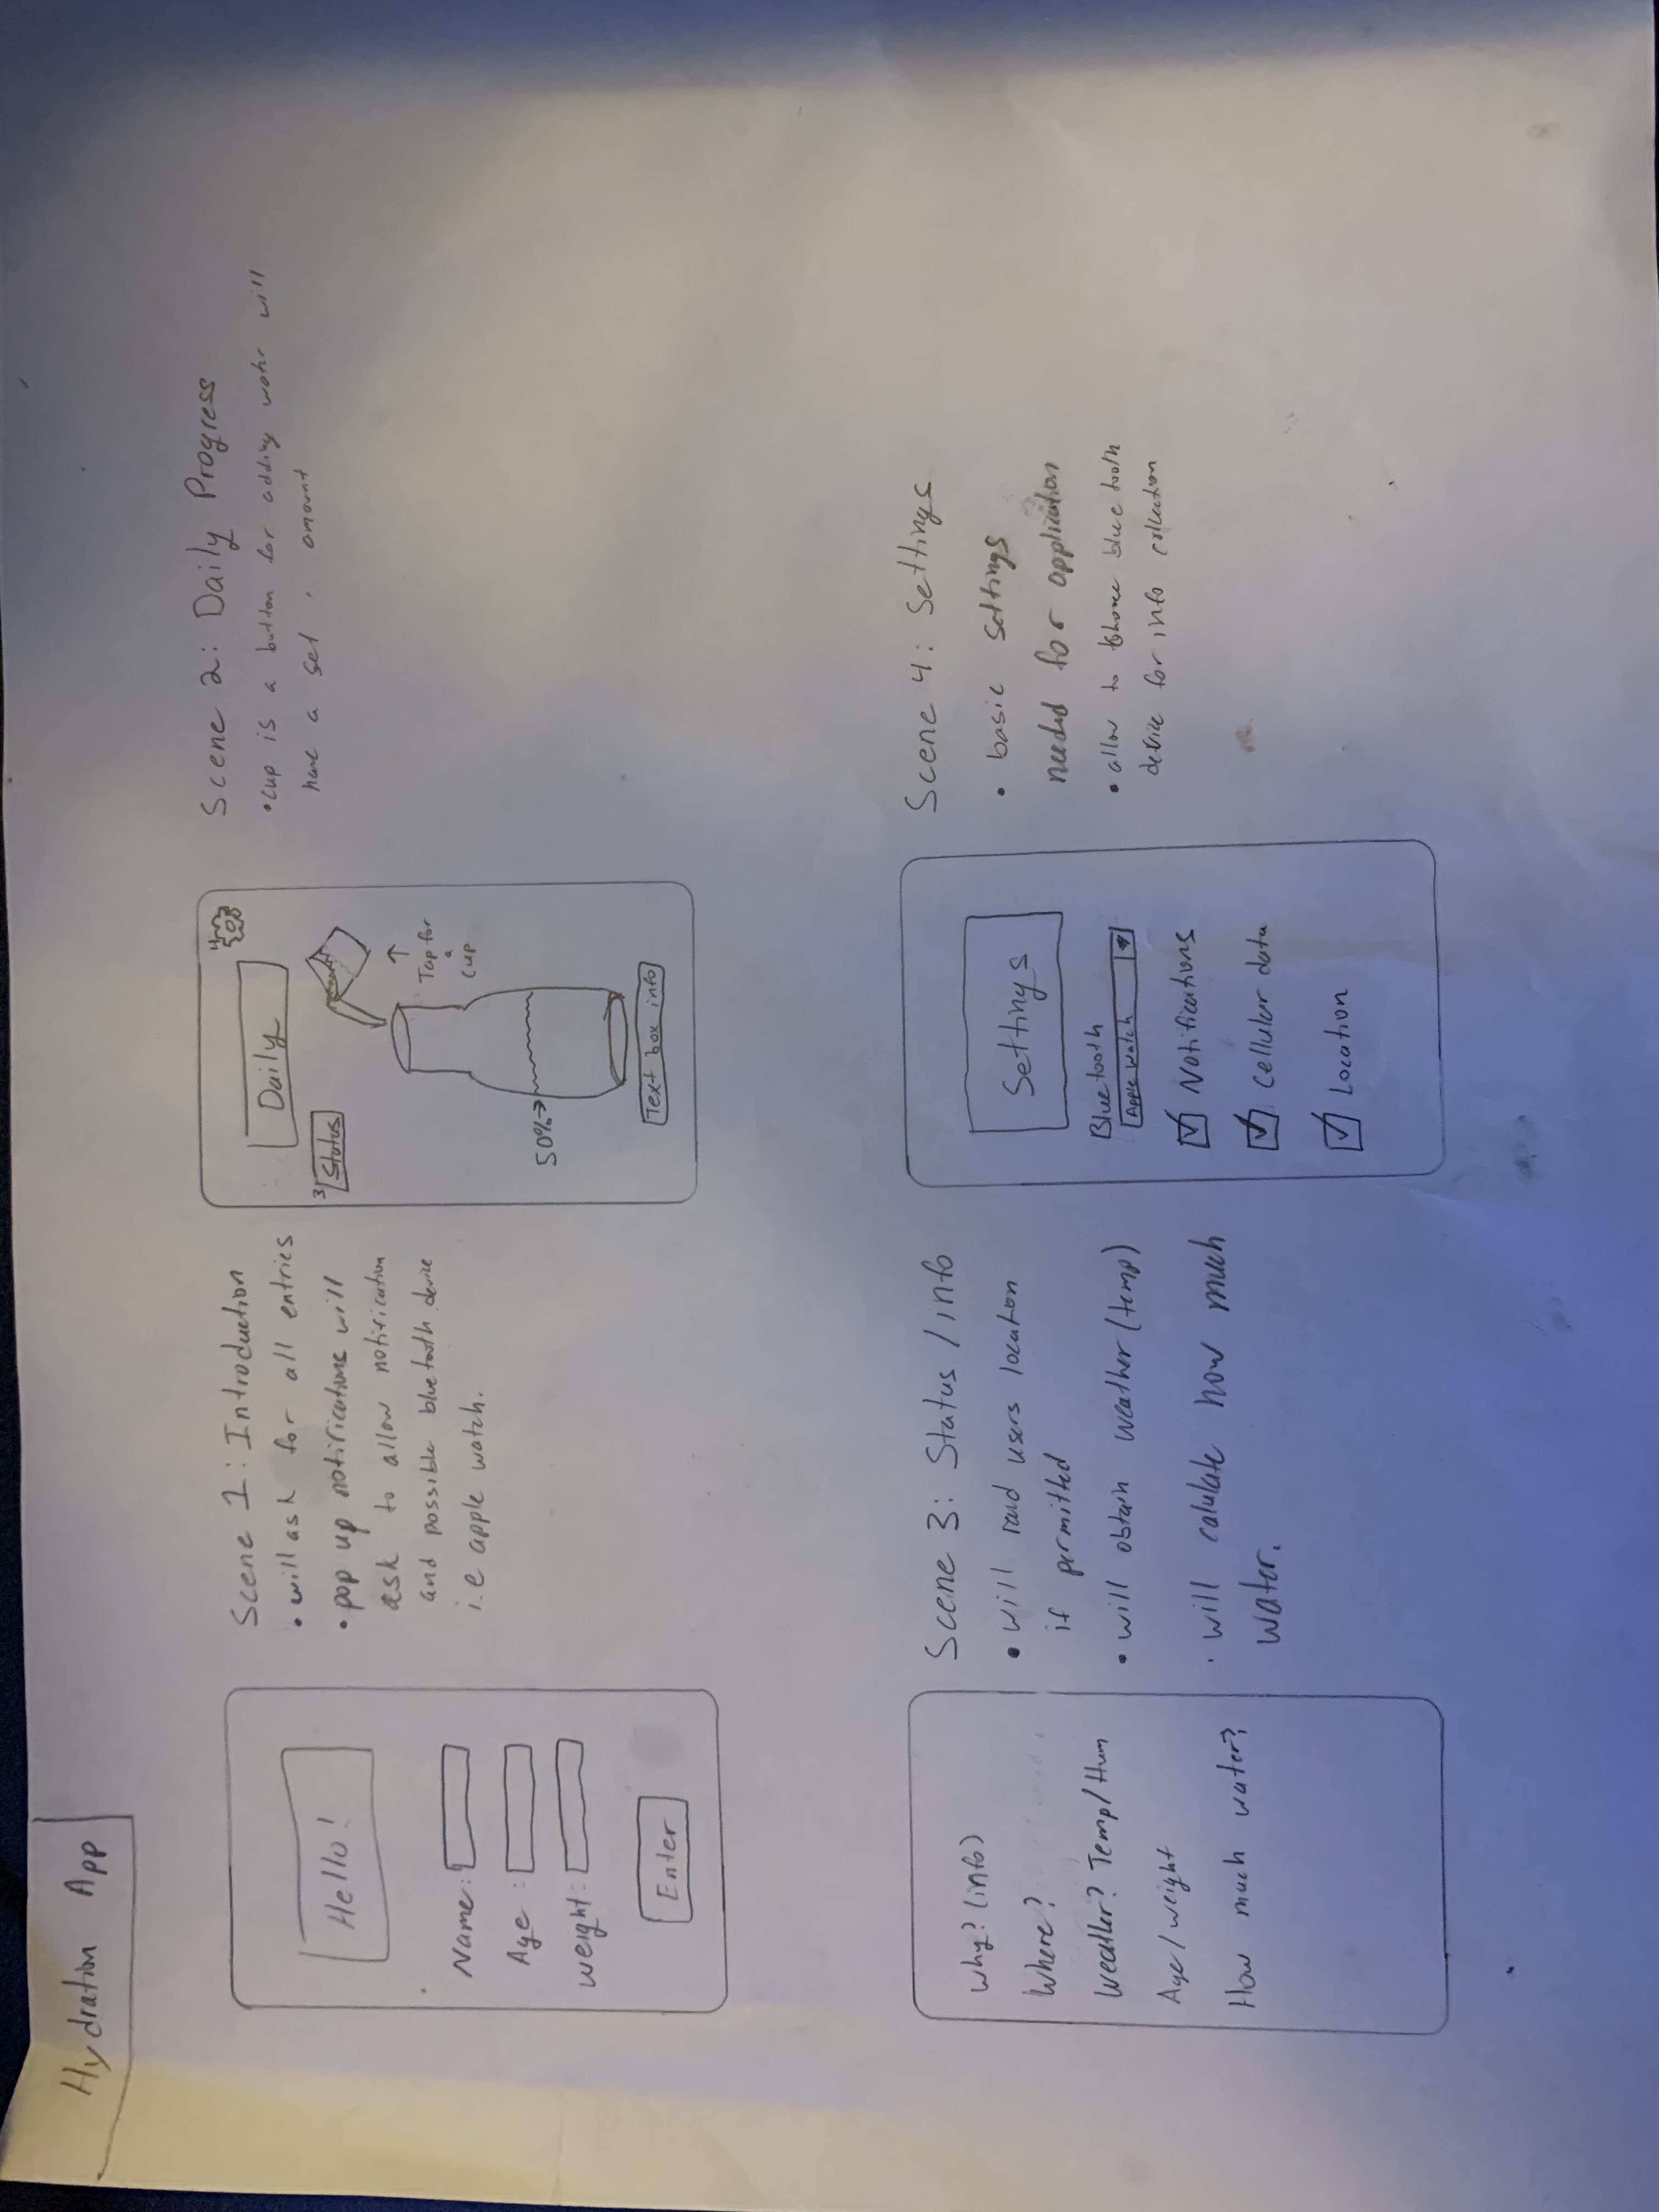 Hydration App
Hello!
Name:
Age :
weight:
Enter
Scene 1: Introduction
• will ask for all entries
• pop up notifications will
ask to allow notification
and possible bluetooth device
i.e apple watch.
4
Daily
3
Status
↑
Tap for
a
cup
50%→
Text box info
Scene 2: Daily Progress
• cup is a button for adding water will
have a set . amount
Why? (info)
Where?
Weather? Temp/Hum
Age/weight
How much water?
Scene 3: Status /info
• will read users location
if permitted
• will obtain weather (temp)
• will calulate how much
water.
Settings
Bluetooth
Apple watch
Notifications
Cellular data
Location
Scene 4: Settings
• basic settings
needed for application
• allow to blue tooth
device for info collection